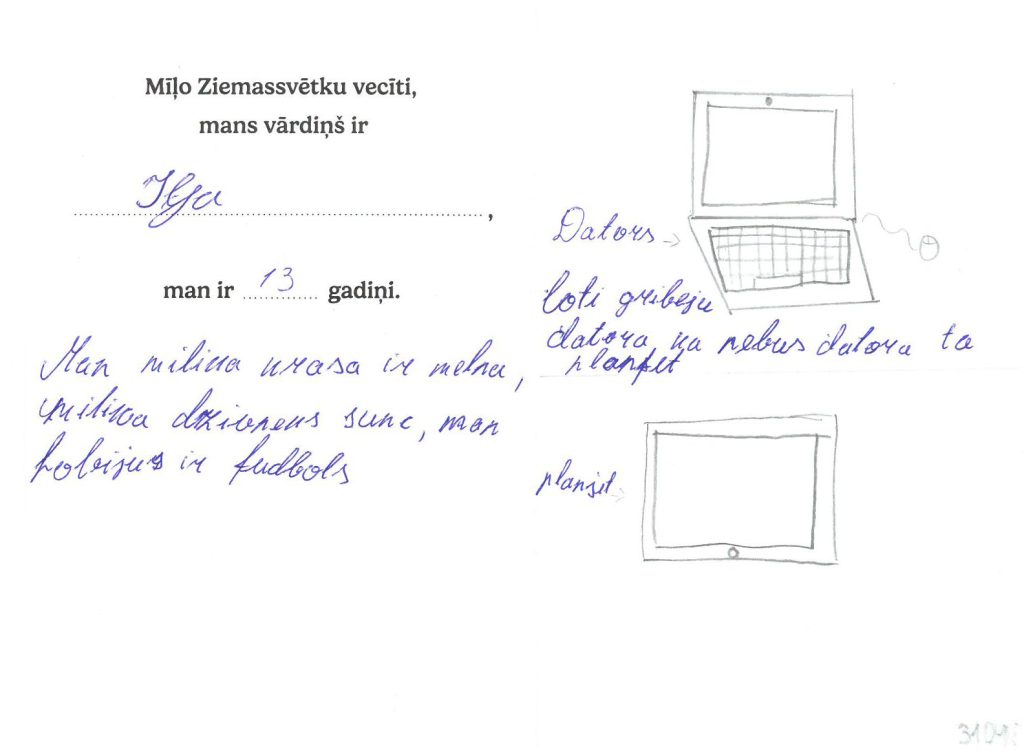 Mīļo Ziemassvētku vecīti,
mans vārdiņš ir
Ilja,
man ir 13 gadiņi.
Man miliкa кrasa ir melna,
miliкa dzivneкs sunc, man
hobijus ir fudbols
Dators →
loti gribeju
datora, кa nebus datora ta
planžet
planžet →